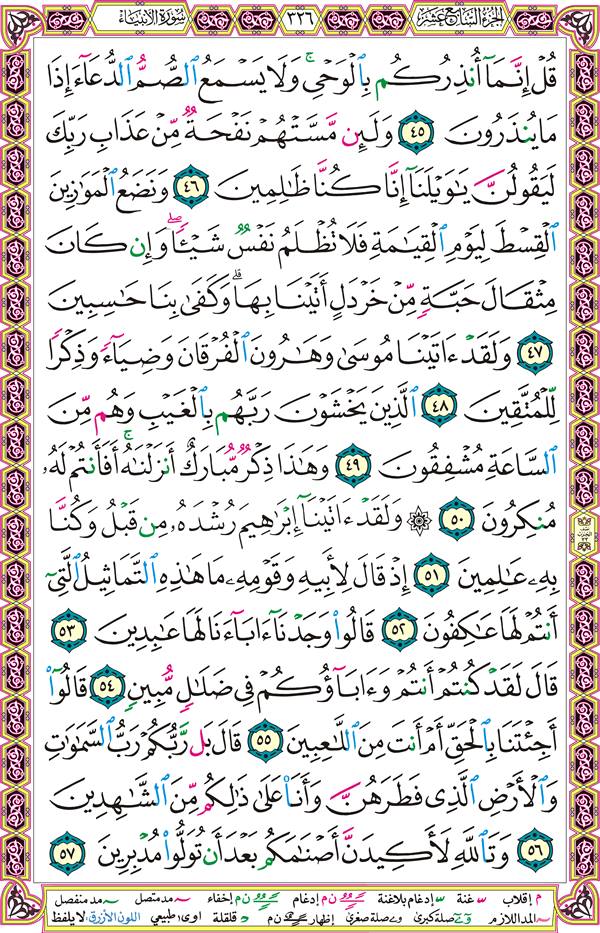 الجزء السابع عشر
٣٢٦
سورة الأنبياء
قُلۡ إِنَّمَآ أُنذِرُكُم بِٱلۡوَحۡيِۚ وَلَا يَسۡمَعُ ٱلصُّمُّ ٱلدُّعَآءَ إِذَا
مَا يُنذَرُونَ ٤٥ وَلَئِن مَّسَّتۡهُمۡ نَفۡحَةٞ مِّنۡ عَذَابِ رَبِّكَ
لَيَقُولُنَّ يَٰوَيۡلَنَآ إِنَّا كُنَّا ظَٰلِمِينَ ٤٦ وَنَضَعُ ٱلۡمَوَٰزِينَ
ٱلۡقِسۡطَ لِيَوۡمِ ٱلۡقِيَٰمَةِ فَلَا تُظۡلَمُ نَفۡسٞ شَيۡـٔٗاۖ وَإِن كَانَ
مِثۡقَالَ حَبَّةٖ مِّنۡ خَرۡدَلٍ أَتَيۡنَا بِهَاۗ وَكَفَىٰ بِنَا حَٰسِبِينَ
٤٧ وَلَقَدۡ ءَاتَيۡنَا مُوسَىٰ وَهَٰرُونَ ٱلۡفُرۡقَانَ وَضِيَآءٗ وَذِكۡرٗا
لِّلۡمُتَّقِينَ ٤٨ ٱلَّذِينَ يَخۡشَوۡنَ رَبَّهُم بِٱلۡغَيۡبِ وَهُم مِّنَ
ٱلسَّاعَةِ مُشۡفِقُونَ ٤٩ وَهَٰذَا ذِكۡرٞ مُّبَارَكٌ أَنزَلۡنَٰهُۚ أَفَأَنتُمۡ لَهُۥ
مُنكِرُونَ ٥٠ ۞ وَلَقَدۡ ءَاتَيۡنَآ إِبۡرَٰهِيمَ رُشۡدَهُۥ مِن قَبۡلُ وَكُنَّا
بِهِۦ عَٰلِمِينَ ٥١ إِذۡ قَالَ لِأَبِيهِ وَقَوۡمِهِۦ مَا هَٰذِهِ ٱلتَّمَاثِيلُ ٱلَّتِيٓ
أَنتُمۡ لَهَا عَٰكِفُونَ ٥٢ قَالُواْ وَجَدۡنَآ ءَابَآءَنَا لَهَا عَٰبِدِينَ ٥٣
قَالَ لَقَدۡ كُنتُمۡ أَنتُمۡ وَءَابَآؤُكُمۡ فِي ضَلَٰلٖ مُّبِينٖ ٥٤ قَالُوٓاْ
أَجِئۡتَنَا بِٱلۡحَقِّ أَمۡ أَنتَ مِنَ ٱللَّٰعِبِينَ ٥٥ قَالَ بَل رَّبُّكُمۡ رَبُّ ٱلسَّمَٰوَٰتِ
وَٱلۡأَرۡضِ ٱلَّذِي فَطَرَهُنَّ وَأَنَا۠ عَلَىٰ ذَٰلِكُم مِّنَ ٱلشَّٰهِدِينَ
٥٦ وَتَٱللَّهِ لَأَكِيدَنَّ أَصۡنَٰمَكُم بَعۡدَ أَن تُوَلُّواْ مُدۡبِرِينَ ٥٧
م إقلاب س غنة س إدغام بلاغنة ن م إدغام ن م إخفاء مد متصل مد منفصل
المد اللازم صلة كبرى و ے صلة صغرى إظهار ن م د قلقلة اوى: طبيعي اللون الأزرق: لا يلفظ